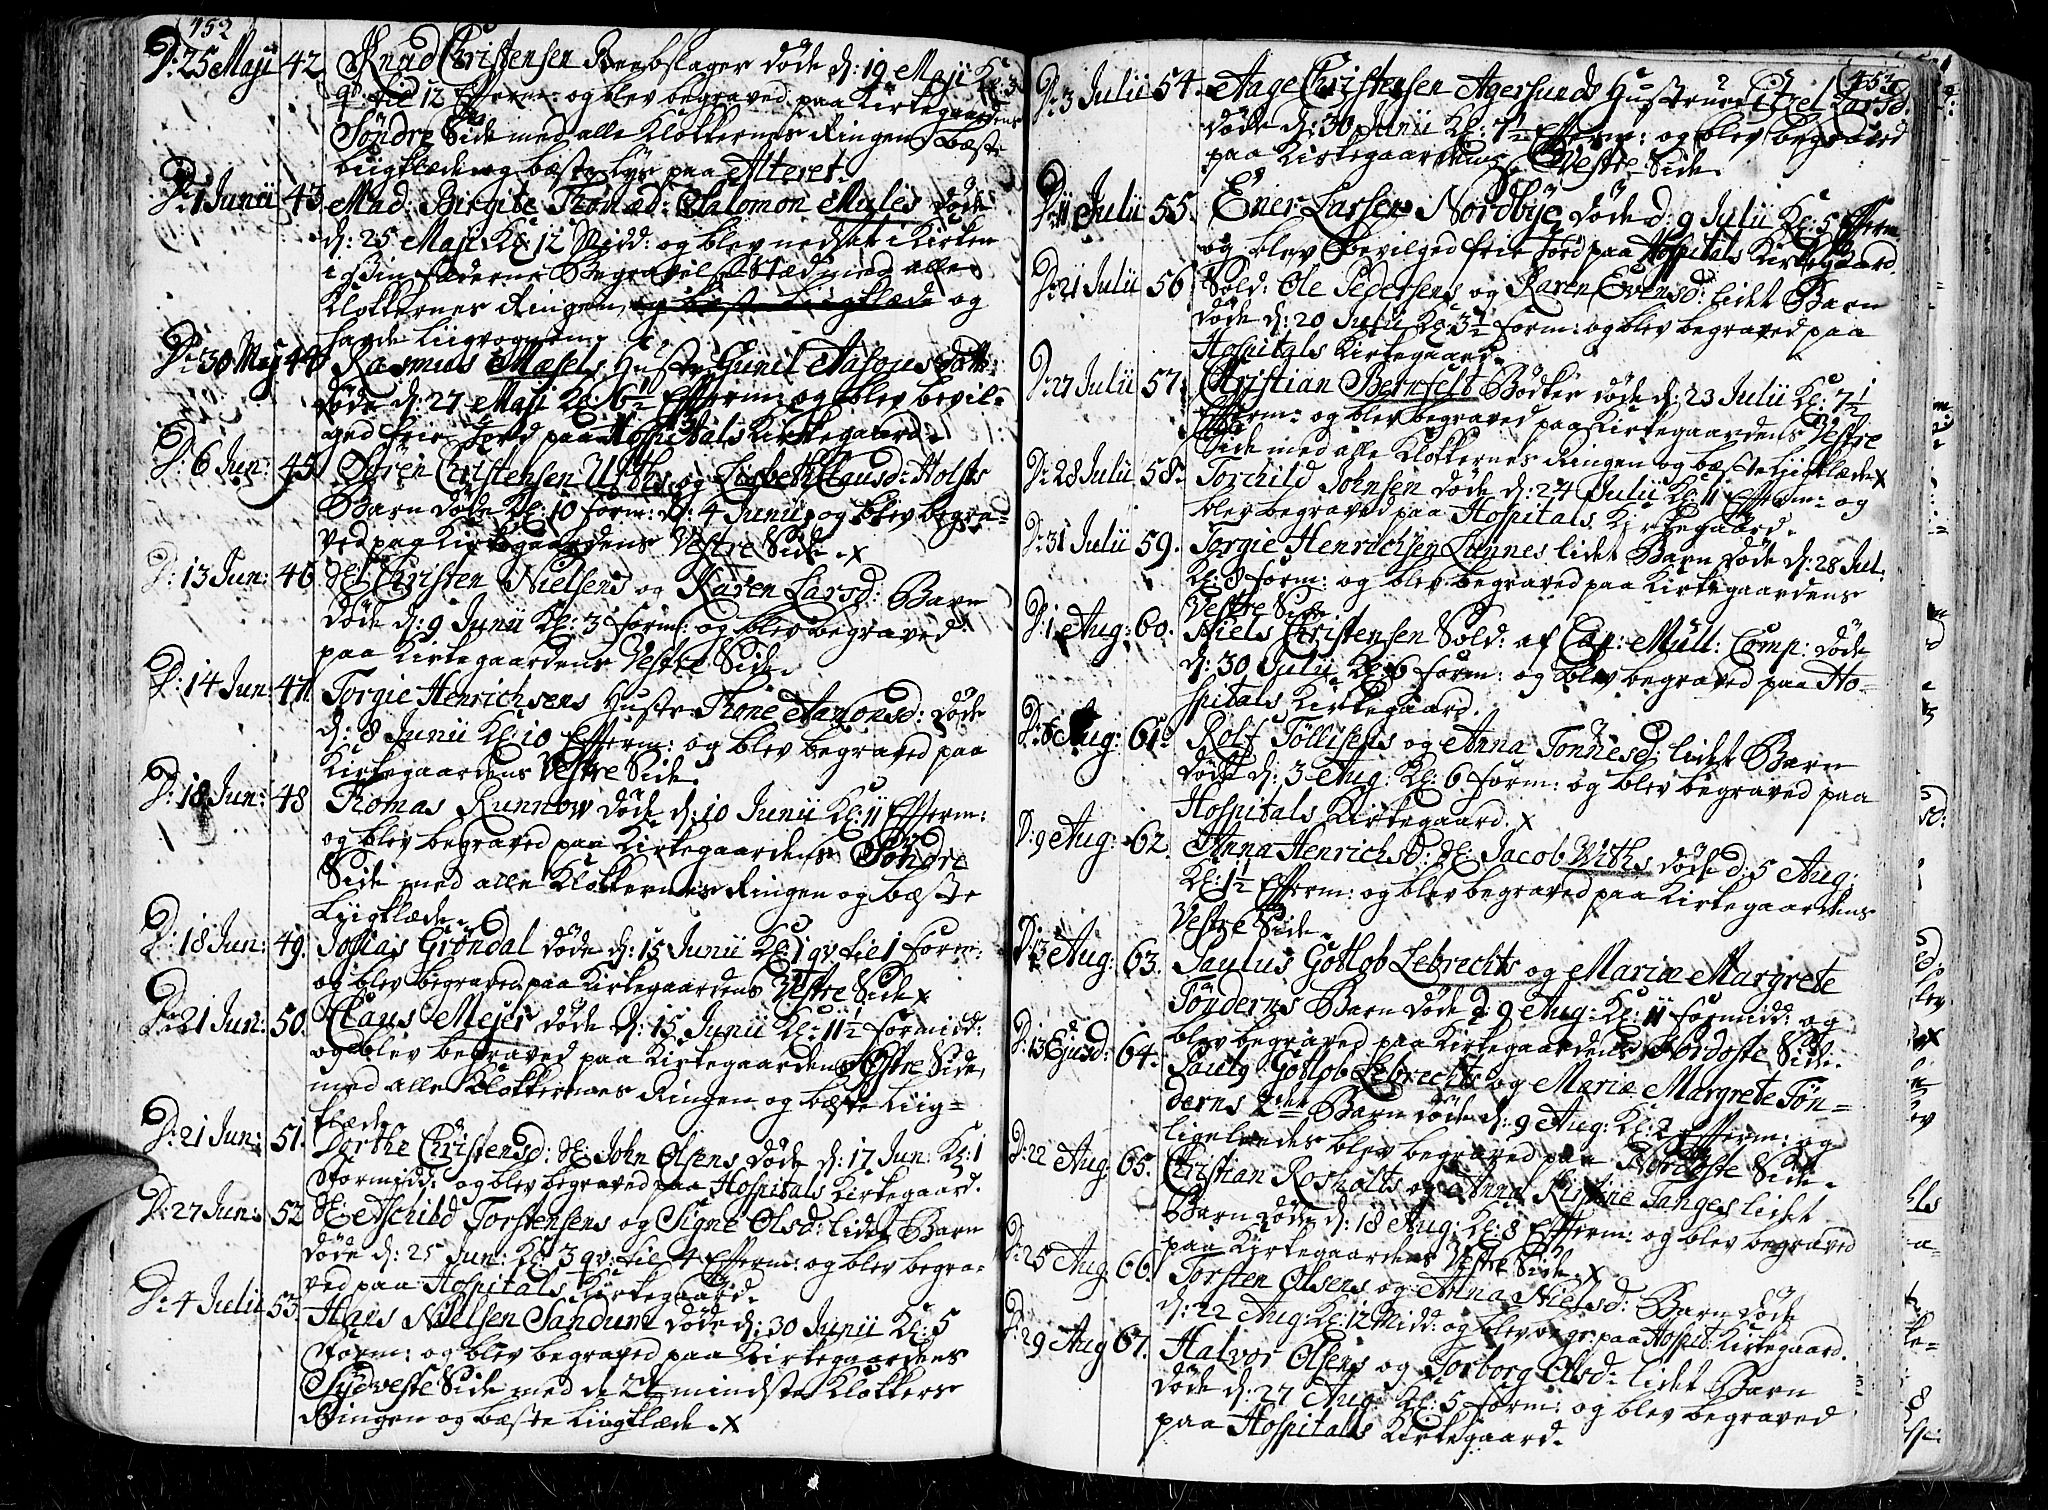 452
D: 25 Maji 42. Knud Christensen Reebslager döde d: 19 Maji Kl: 3
qv: til 12 Efferm: og blev begraved paa Kirkegaardens
Söndre Side med alle Klokkernes Ringen, bæste
Liigklæde og bæste Lys paa Alteret.
D: 1 Junii 43. Mad: Birgite Thomæd: Salomon Mules döde
d: 25 Maji Kl: 12 Midd: og blev nedsat i Kirken
i sin Faders Begravelse Stæd med alle
Klokkernes Ringen, og bæste Liigklæde og
havde Liigvognen.
D: 30 Maj 44. Rasmus Masels Hustr: Gunil Aasous datt:
döde d: 27 Maji Kl: 6½ Efferm: og blev bevil-
ged frie Jord paa Hospitals Kirkegaard.
D: 6 Jun: 45. Sören Christensen Withs og Lisbeth Clausd: Holsts
Barn döde Kl: 10 form: d: 4 Junii, og blev begra-
ved paa Kirkegaardens Vestre Side. x
D: 13 Jun: 46. Sl: Christen Nielsens og Karen Larsd: Barn
döde d: 9 Junii Kl: 3 form: og blev begraved
paa Kirkegaardens Vestre Side.
D: 14 Jun: 47. Torgie Henrichsens Hustr: Trone Aamonsd: döde
d: 8 Junii Kl: 10 Efferm: og blev begraved paa
Kirkegaardens Vestre Side.
D: 18 Jun: 48 Thomas Runnow döde d: 10 Junii Kl: 11 Efferm:
og blev begraved paa Kirkegaardens Söndre
Side med alle Klokkernes Ringen og bæste
Liigklæde.
D: 18 Jun: 49. Josias Gröndal döde d: 15 Junii Kl: 1 qv: til 1 form:
og blev begraved paa Kirkegaardens Vestre Side x
D: 21 Jun: 50. Claus Mejer döde d: 15 Junii Kl: 11½ formidd:
og blev begraved paa Kirkegaardens Vestre Side,
med alle Klokkernes Ringen og bæste Liig-
klæde.
D: 21 Jun: 51. Dorthe Christensd: Sl: John Olsens döde d: 17 Jun: Kl: 1
formidd: og blev begraved paa Hospitals Kirkegaard.
D: 27 Jun: 52 Sl: Aschild Torstensens og Signe Olsd: lidet Barn
döde d: 25 Jun: Kl: 3 qv: til 4 Efferm: og blev begra-
ved paa Hospitals Kirkegaard.
D: 4 Julii 53. Hans Nielsen Sandum döde d: 30 Junii Kl: 5
form: og blev begraved paa Kirkegaardens
Sydveste Side med de 2de mindste Klokkers
Ringen og bæste Liigklæde. x
453
D: 3 Julii 54. Aage Christensen Agersunds Hustrue Citzel Larsd:
döde d: 30 Junii Kl: 7½ Efferm: og blev begraved
paa Kirkegaardens Vestre Side.
D: 11 Julii 55. Ener Larsen Nordbye döde d: 9 Julii Kl: 5 Efferm:
og blev bevilged frie Jord paa Hospitals Kirkegaard.
D: 21 Julii 56. Sold: Ole Pedersens og Karen Evensd: lidet Barn
döde d: 20 Julii Kl: 3½ form: og blev begraved paa
Hospitals Kirkegaard.
D: 27 Julii 57. Christian Bernfelt Bödker döde d: 23 Julii Kl: 7½
Efferm: og blev begraved paa Kirkegaardens Vestre
Side med alle Klokkernes Ringen og bæste Liigklæde x
D: 28 Julii 58. Torchild Johnsen döde d: 24 Julii Kl: 11 Efferm: og
blev begraved paa Hospitals Kirkegaard.
D: 31 Julii 59. Torgie Henrichsen Lunnes lidet Barn döde d: 28 Jul:
Kl: 8 form: og blev begraved paa Kirkegaardens
Vestre Side
D: 1 Aug: 60. Niels Christensen Sold: af Cap: Müll: Comp: döde
d: 30 Julii Kl: 6 form: og blev begraved paa Ho-
spitals Kirkegaard.
D: 6 Aug: 61. Rolf Töllisens og Anna Tönnesd: lidet Barn
döde d: 3 Aug: Kl: 6 form: og blev begraved paa
Hospitals Kirkegaard. x
D: 9 Aug: 62. Anna Henrichsd: Sl: Jacob Withs döde d: 5 Aug:
Kl: 1½ Efferm: og blev begraved paa Kirkegaardens
Vestre Side.
D: 13 Aug: 63. Paulus Gotlob Lebrechts og Mariæ Margrete
Tönderns Barn döde d: 9 Aug: Kl: 11 formidd: og
blev begraved paa Kirkegaardens Nordoste Side.
D: 13 Ejusd: 64. Pauly Gotlob Lebrechts og Mariæ Margrete Tön-
derns 2det Barn döde d: 9 Aug: Kl: 2 Efferm: og
ligeledes blev begraved paa Nordoste Side.
D: 22 Aug 65. Christian Rosholts og Anna Kirstine Tanges lidet
Barn döde d: 18 Aug: Kl: 8 Efferm: og blev begraved
paa Kirkegaardens Vestre Side. x
D: 25 Aug 66. Torsten Olsens og Anna Nielsd: Barn döde
d: 22 Aug: Kl: 12 Midd: og blev begr: paa Hospit: Kirkegaard.
D: 29 Aug 67. Halvor Olsens og Torborg Olsd: lidet Barn
döde d: 27 Aug: Kl: 5 form: og blev begraved
paa Hospitals Kirkegaard.